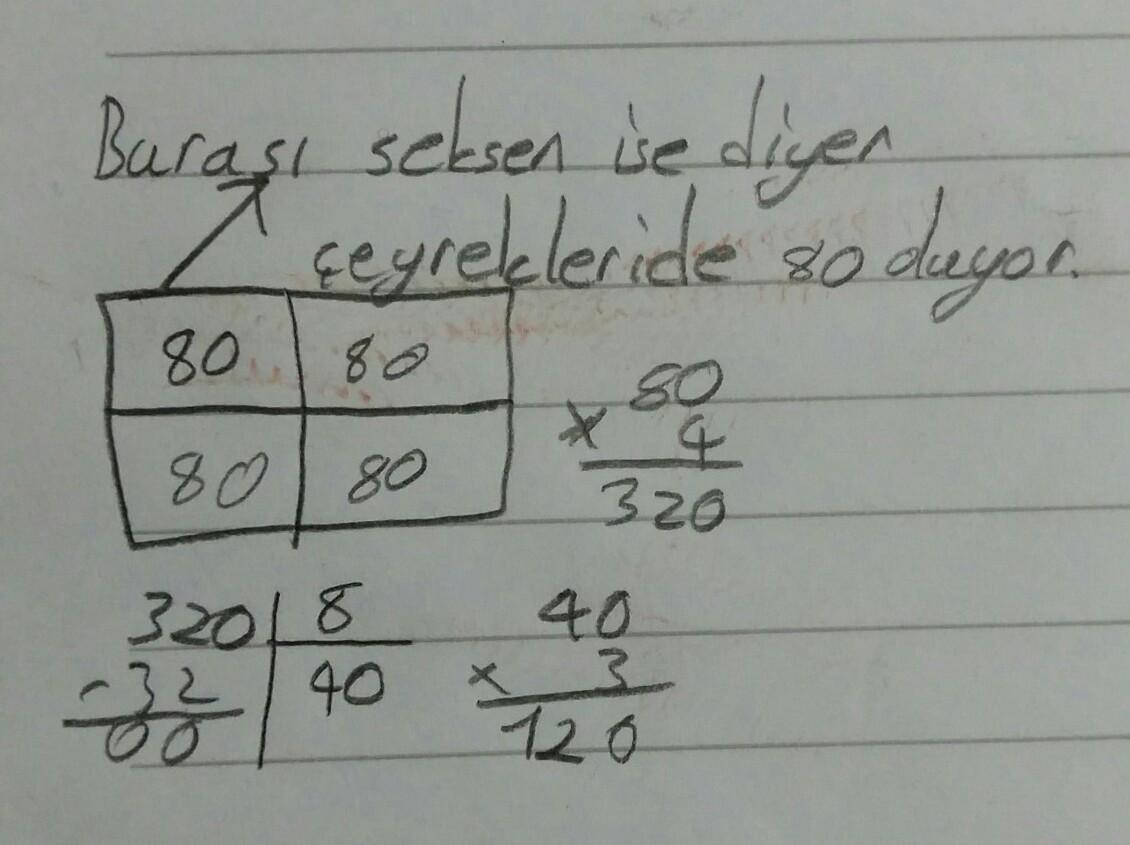 Burası seksen ise diyer
çeyrekleride 80 duyor.
80 80
80 80
80
x 4
320
320 8
-32 40
00
40
x 3
120